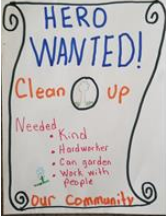 HERO
WANTED!
Clean up
Needed
• Kind
• Hardworker
• Can garden
• Work with
people
Our Community